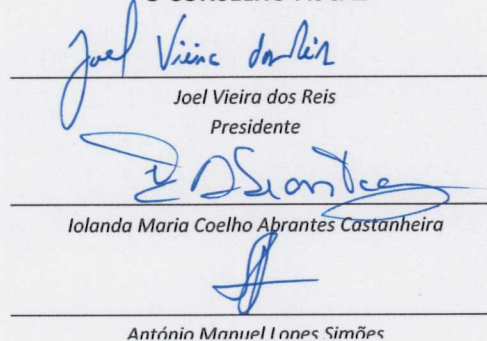 O CONSELHO FISCAL
Joel Vieira dos Reis
Joel Vieira dos Reis
Presidente
Iolanda Maria Coelho Abrantes Castanheira
António Manuel Lopes Simões